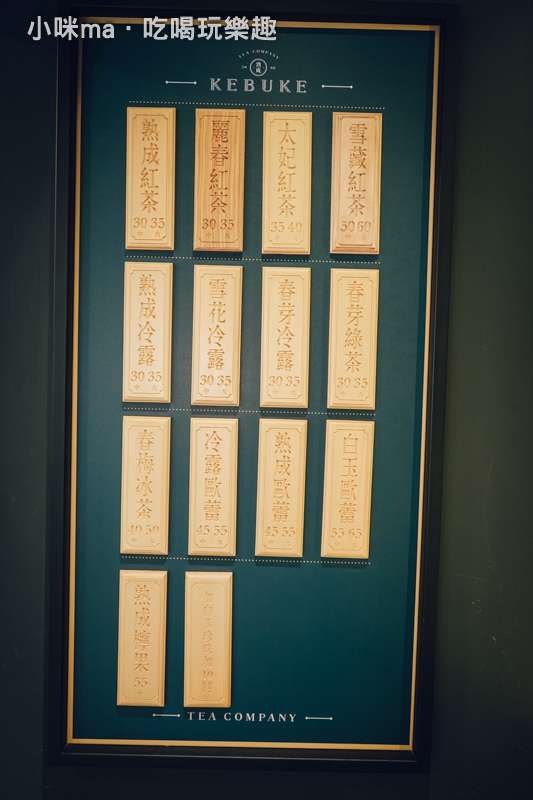 小咪ma・吃喝玩樂趣
TEA COMPANY
KEBUKE
熟成紅茶
30 35
麗春紅茶
30 35
太妃紅茶
35 40
雪藏紅茶
50 60
熟成冷露
30 35
雪花冷露
30 35
春芽冷露
30 35
春芽綠茶
30 35
春梅冰茶
40 50
冷露歐蕾
45 55
熟成歐蕾
45 55
白玉歐蕾
55 65
熟成檸果
55
TEA COMPANY